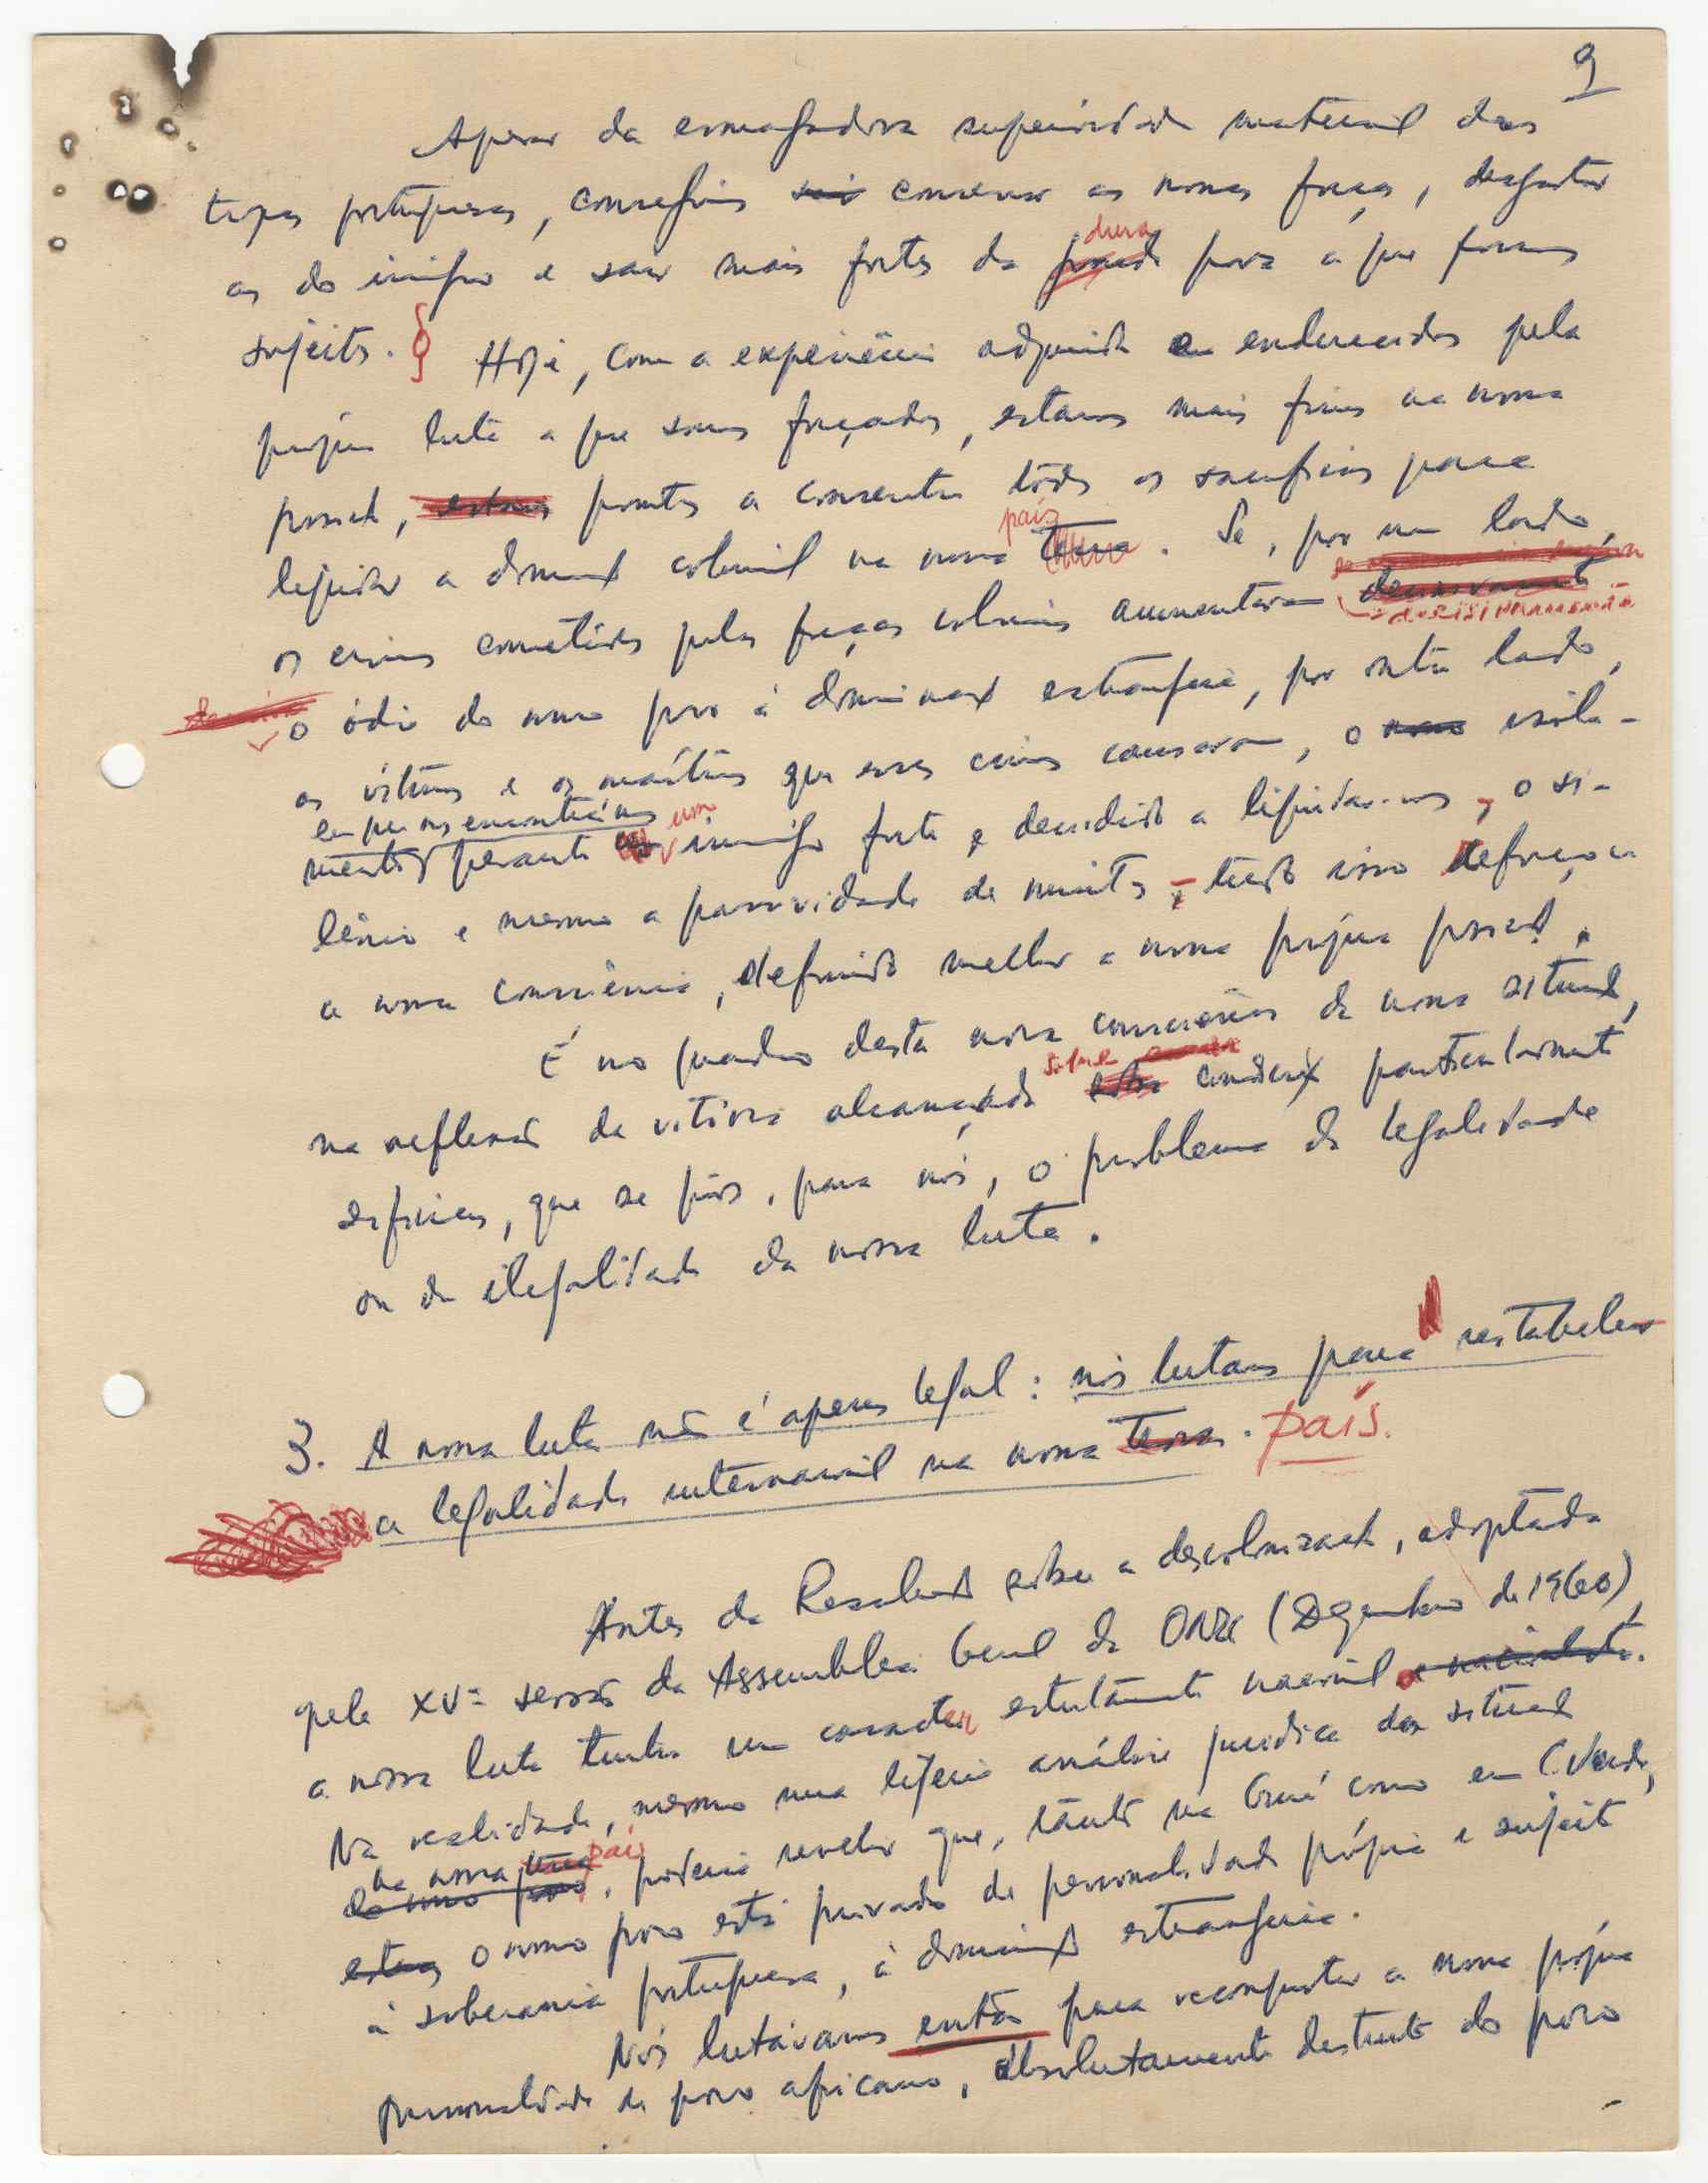 9
Apesar da esmagadora superioridade material das
tropas portuguesas, conseguimos conservar as nossas forças, desgastar
as do inimigo e sair mais fortes da dura prova a que fomos
sujeitos. Hoje, com a experiência adquirida e endurecidos pela
própria luta a que somos forçados, estamos mais firmes na nossa
posição, estamos prontos a consentir todos os sacrifícios para
liquidar a dominação colonial na nossa terra país. Se, por um lado,
os crimes cometidos pelas forças coloniais aumentaram decisivamente
o ódio do nosso povo à dominação estrangeira, por outro lado,
as vítimas e os mártires que esses crimes causaram, o isola-
mento em que nos encontrámos perante um inimigo forte e decidido a liquidar-nos, o si-
lêncio e mesmo a passividade de muitos, - tudo isso reforçou
a nossa consciência, definindo melhor a nossa própria posição.
É no quadro desta nova consciência da nossa situação,
na reflexão da vitória alcançada sobre condições particularmente
difíceis, que se pôs, para nós, o problema da legalidade
ou da ilegalidade da nossa luta.
3. A nossa luta não é apenas legal: nós lutamos para restabelecer
a legalidade internacional na nossa terra. país.
Antes da Resolução sobre a descolonização, adoptada
pela XVª sessão da Assembleia Geral da ONU (Dezembro de 1960)
a nossa luta tinha um caracter estritamente nacional e nacionalista.
Na realidade, mesmo uma ligeira análise jurídica da situação
na nossa terra país do nosso povo, poderia revelar que, tanto na Guiné como em C. Verde,
estamos o nosso povo está privado de personalidade própria e sujeito
à soberania portuguesa, à dominação estrangeira.
Nós lutávamos então para reconquistar a nossa própria
personalidade de povo africano, absolutamente distinto do povo